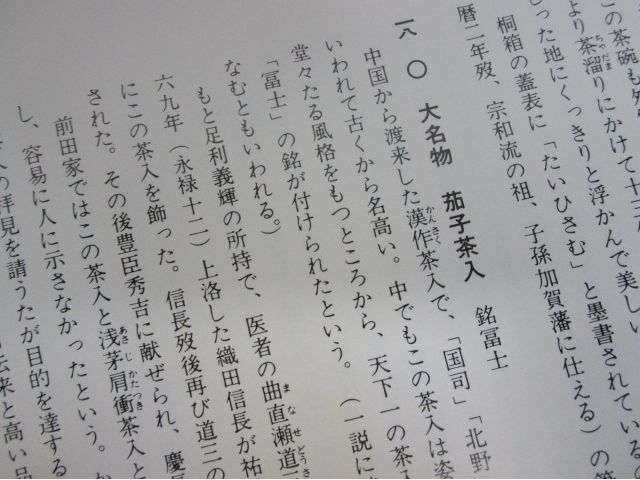 この茶碗も外
より茶溜りにかけて十三
った地にくっきりと浮かんで美しい
桐箱の蓋表に「たいひさむ」と墨書されている
暦二年歿、宗和流の祖、子孫加賀藩に仕える）の箱
一八 〇 大名物 茄子茶入 銘冨士
中国から渡来した漢作茶入で、「国司」「北野
いわれて古くから名高い。中でもこの茶入は姿
堂々たる風格をもつところから、天下一の茶入
「冨士」の銘が付けられたという。（一説に
なむともいわれる。）
もと足利義輝の所持で、医者の曲直瀬道三
六九年（永禄十二）上洛した織田信長が祐
にこの茶入を飾った。信長歿後再び道三の
された。その後豊臣秀吉に献ぜられ、慶長
前田家ではこの茶入と浅茅肩衝茶入と
し、容易に人に示さなかったという。か
拝見を請うたが目的を達する
伝来と高い品